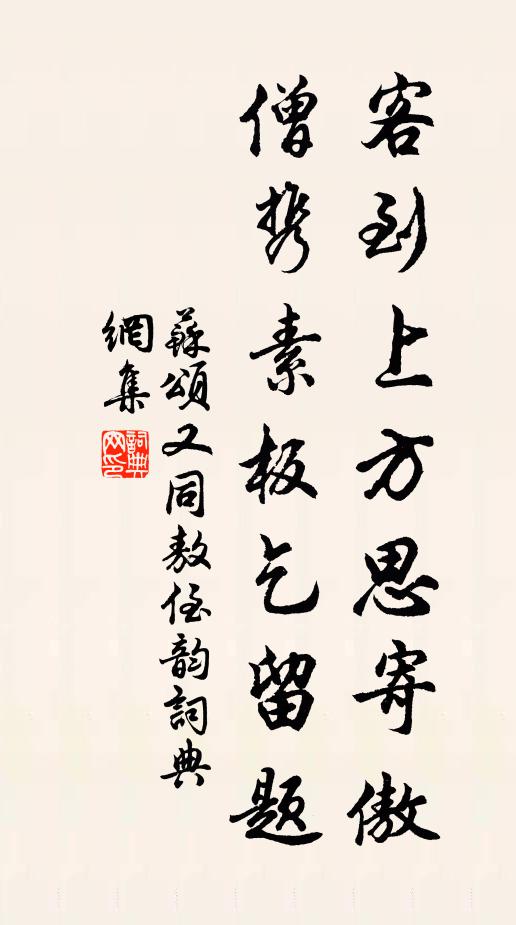 客到上方思寄傲
僧携素板乞留題
蘇頌又同敖侄韵詞典
網集
詞典
网印